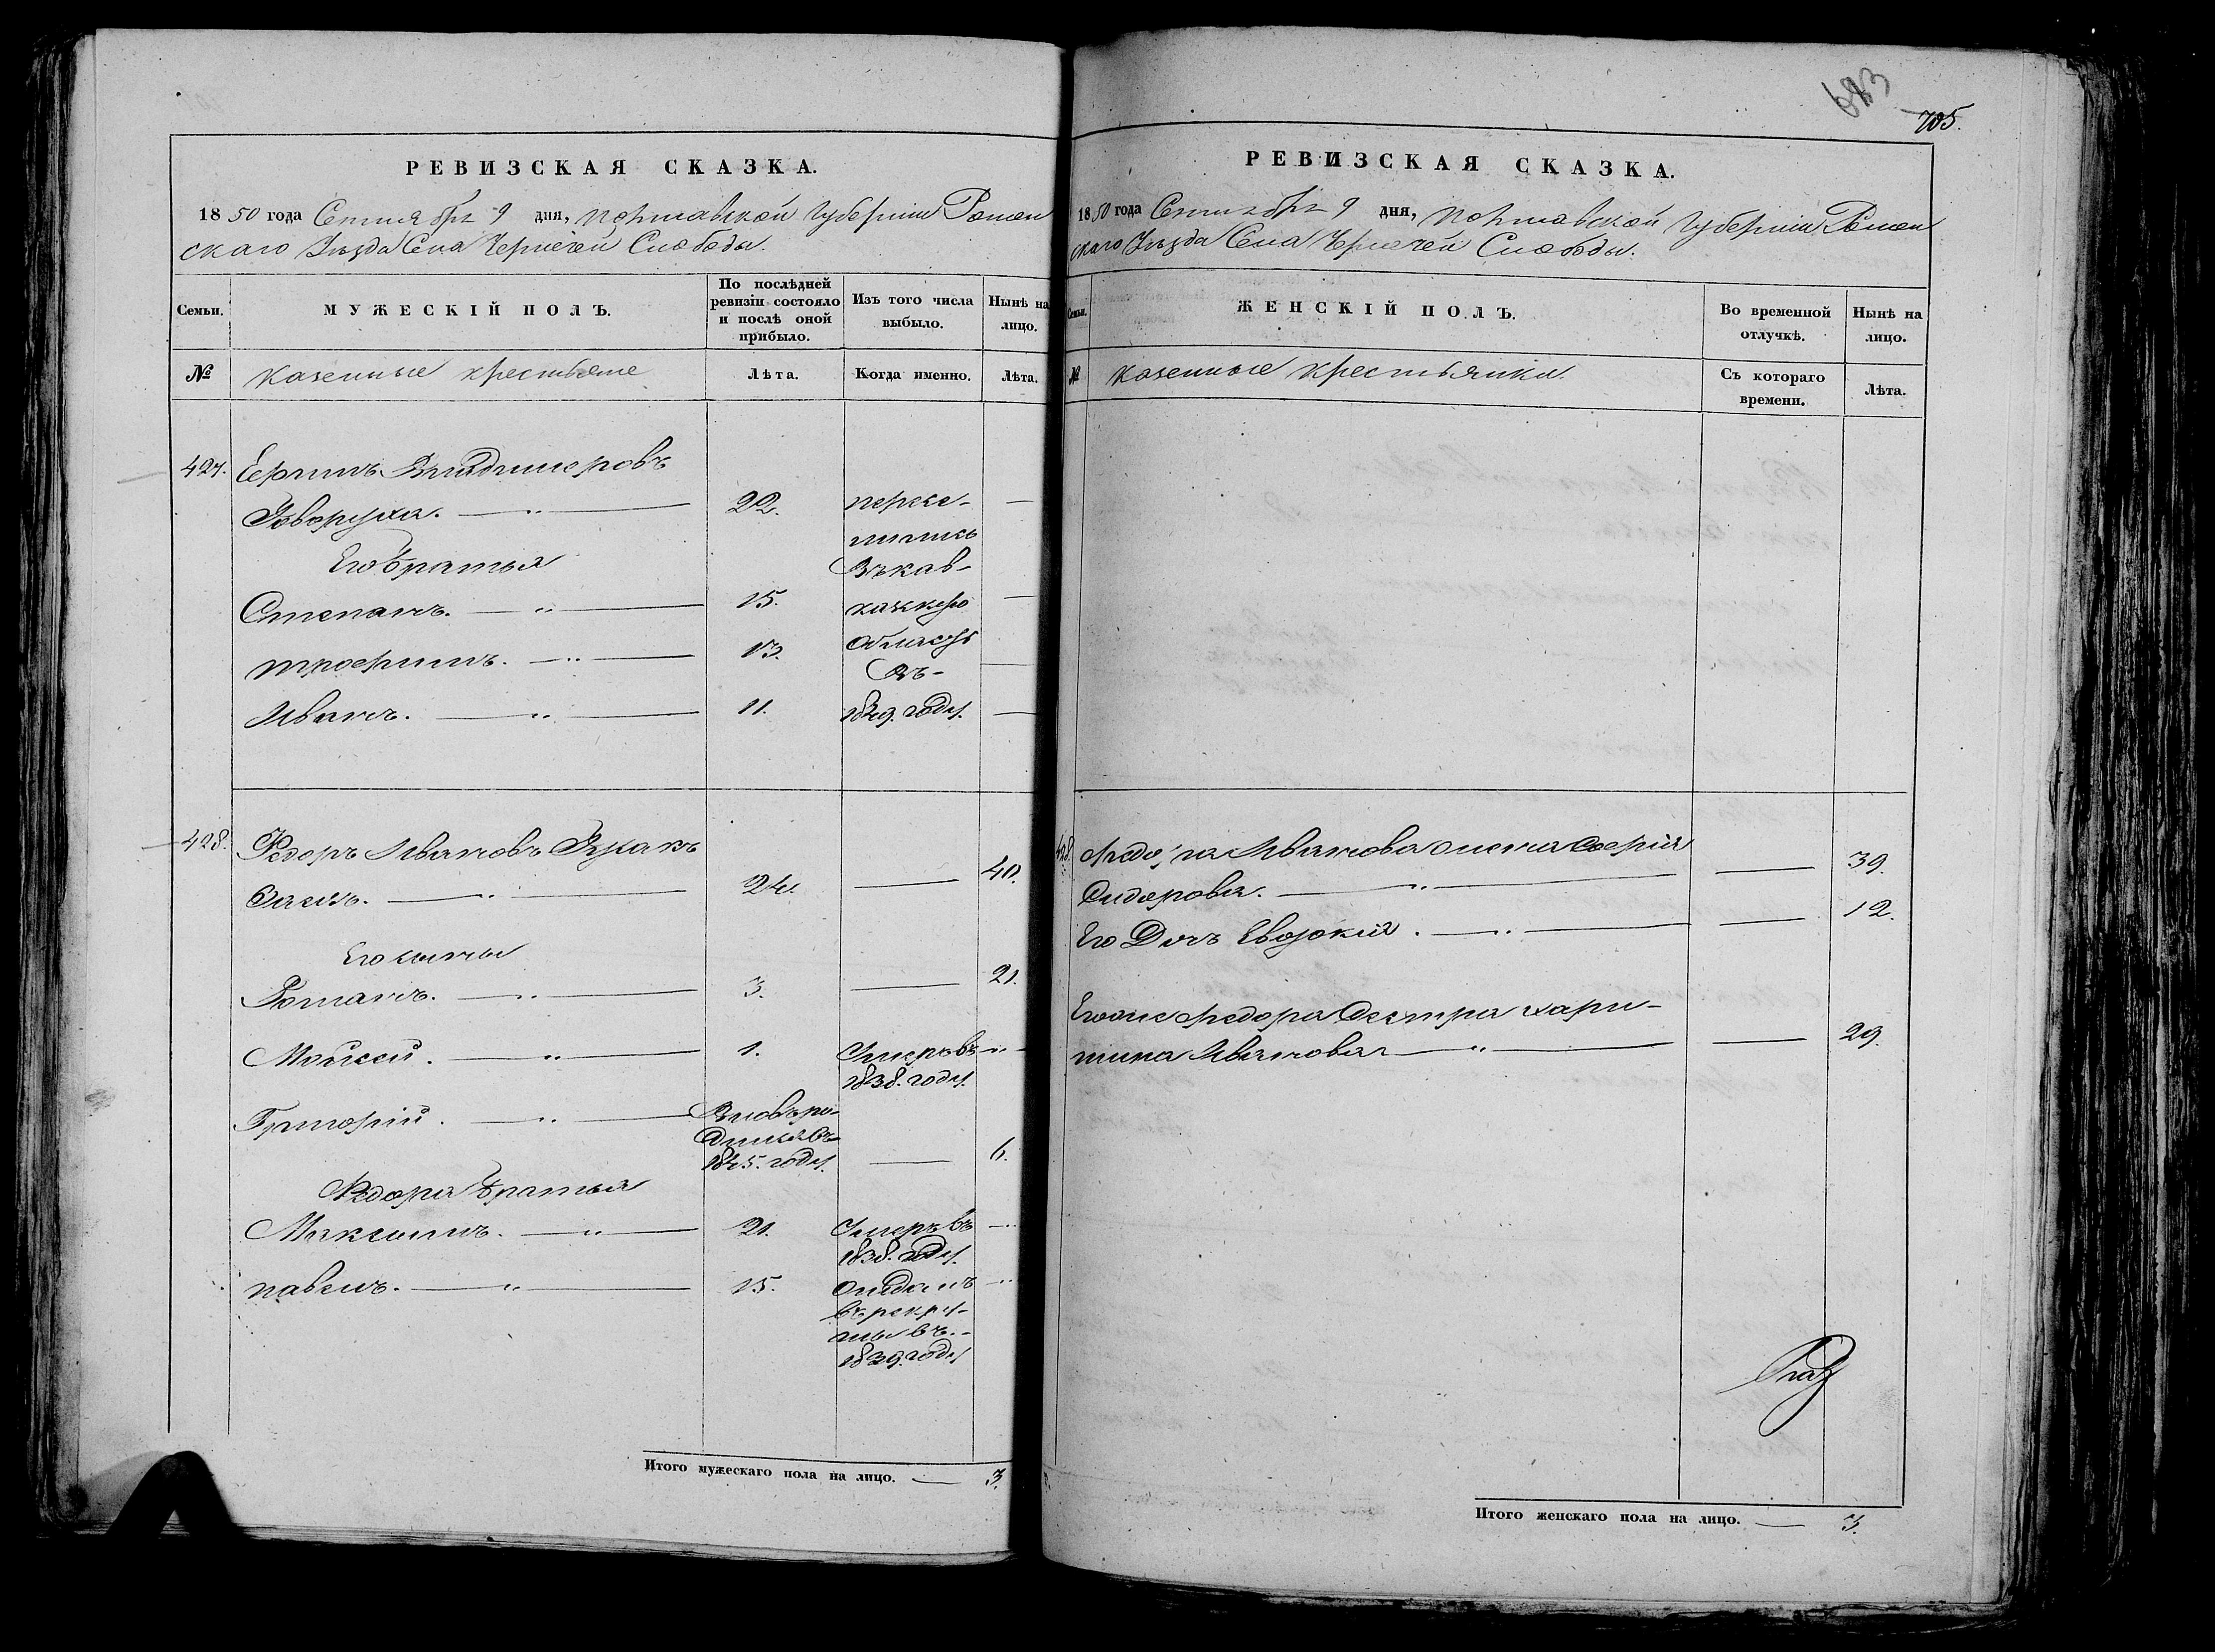 РЕВИЗСКАЯ СКАЗКА.
1850 года Сентября 9 дня, Полтавской Губерніи Ромен
скаго Уѣзда Села Чернечей Слободы.
Семьи.
МУЖЕСКІЙ ПОЛЪ.
По послѣдней ревизіи состояло и послѣ оной прибыло.
Изъ того числа выбыло.
Нынѣ на лицо.
№
казенные крестьяне
Лѣта.
Когда именно.
Лѣта.
427. Владимеровъ
Говоруха. 22. пересе-
лились
Его братья Въкав-
Степанъ. 15.
Трофимъ. 13. Область
Въ-
Иванъ. 11. 1849. году.
428. Федоръ Ивановъ
24. 40.
Его сыны
Романъ. 3. 21.
Мойсей. 1. Умеръ въ
1838. году.
Григорій. Вновь ро-
дился въ
1845. году. 6.
Федора братья
Максимъ. 21. Умеръ въ
1838. году.
Павелъ. 15. Отданъ
въ рекру-
ты въ-
1839. году
Итого мужескаго пола на лицо. 3.
683
705.
РЕВИЗСКАЯ СКАЗКА.
1850 года Сентября 9 дня, Полтавской Губерніи Ромен
скаго Уѣзда Села Чернечей Слободы.
Семьи.
ЖЕНСКІЙ ПОЛЪ.
Во временной отлучкѣ.
Нынѣ на лицо.
№
казенные крестьянки
Съ котораго времени.
Лѣта.
428. Федора Иванова жена Софія 39.
Сидорова.
Его Дочь Евдокія. 12.
Егоже Федора Сестра Хари-
тина Иванова 29.
Итого женскаго пола на лицо. 3.